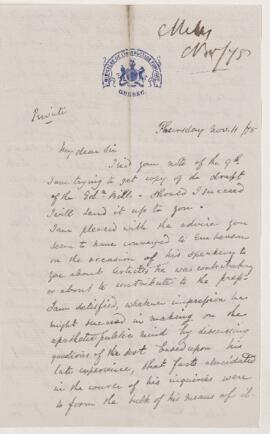 Miles
Nov/75
MINISTÈRE DE L'INSTRUCTION PUBLIQUE
QUEBEC.
Private
Thursday Nov. 11/75
My dear Sir
I had your note of the 9th
I am trying to get copy of the draft
of the Edn Bill. Should I succeed
I will send it up to you.
I am pleased with the advice you
seem to have conveyed to
on the occasion of his speaking to
you about articles he was contributing
or about to contribute to the press
I am satisfied, whatever impression he
might succeed in making on the
apathetic public mind by discussing
questions of the sort based upon his
late experience, that facts elucidated
in the course of his inquiries were
to form the bulk of his means of it.